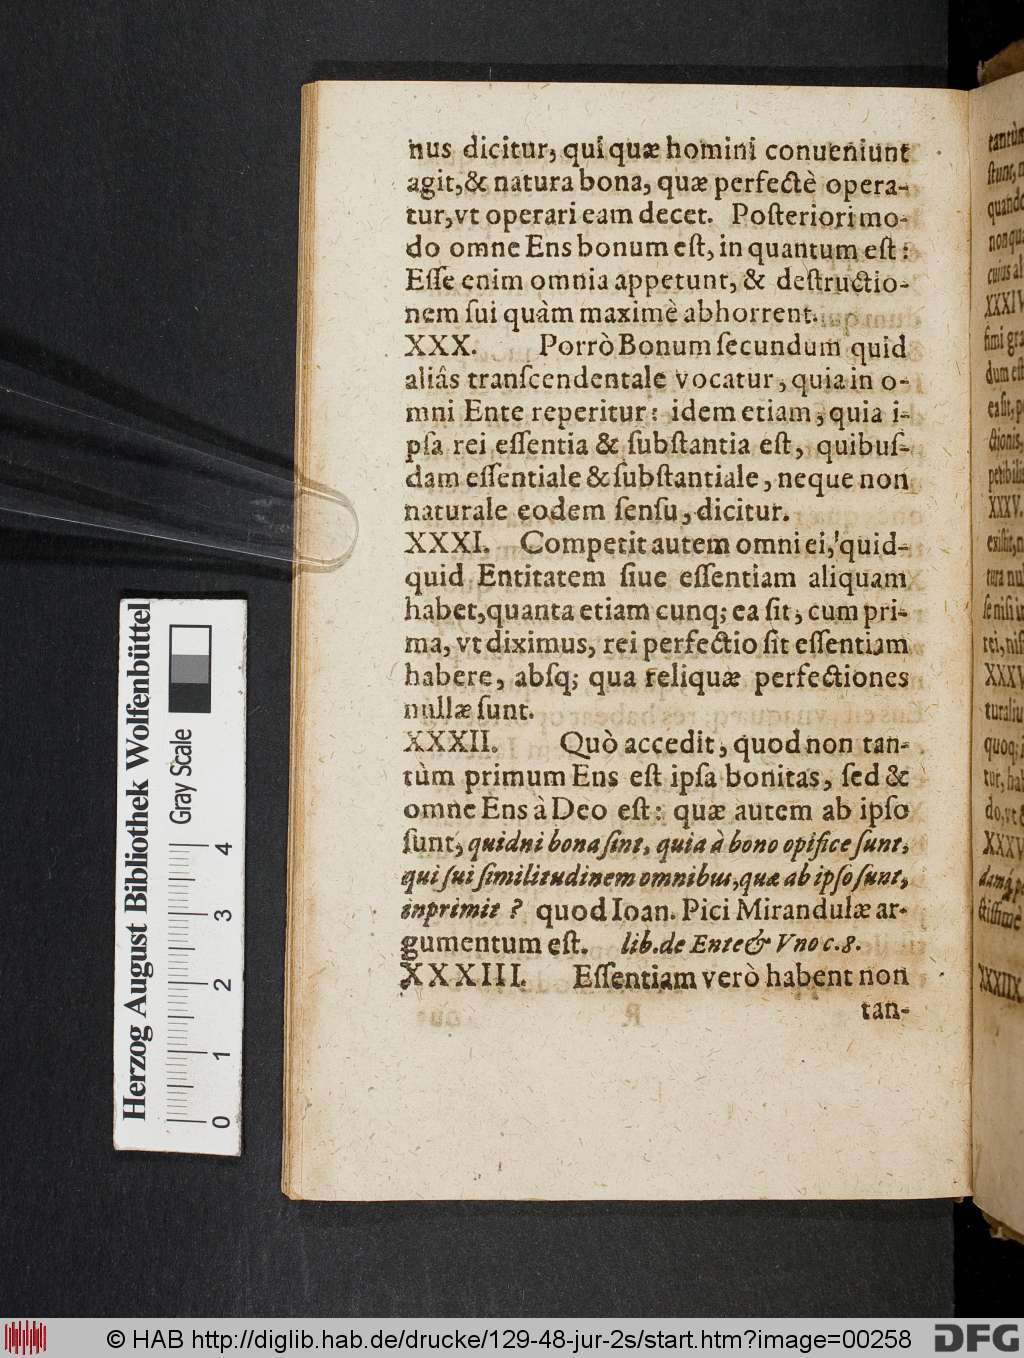 nus dicitur, qui quæ homini conueniunt
agit,& natura bona, quæ perfectè opera-
tur,vt operari eam decet. Poſteriori mo-
do omne Ens bonum eſt, in quantum eſt:
Eſſe enim omnia appetunt, & deſtructio-
nem ſui quàm maximè abhorrent.
XXX. Porrò Bonum ſecundum quid
aliâs tranſcendentale vocatur, quia in o-
mni Ente reperitur: idem etiam, quia i-
pſa rei eſſentia & ſubſtantia eſt, quibuſ-
dam eſſentiale & ſubſtantiale, neque non
naturale eodem ſenſu, dicitur.
XXXI. Competit autem omni ei, quid-
quid Entitatem ſiue eſſentiam aliquam
habet,quanta etiam cunq; ea ſit, cum pri-
ma, vt diximus, rei perfectio ſit eſſentiam
habere, abſq; qua reliquæ perfectiones
nullæ ſunt.
XXXII. Quò accedit, quod non tan-
tùm primum Ens eſt ipſa bonitas, ſed &
omne Ens à Deo eſt: quæ autem ab ipſo
ſunt, quidni bona ſint, quia à bono opifice ſunt,
qui ſui ſimilitudinem omnibus,quæ ab ipſo ſunt,
inprimit ? quod Ioan. Pici Mirandulæ ar-
gumentum eſt. lib.de Ente & Vno c.8.
XXXIII. Eſſentiam verò habent non
tan-
tantùm
quando
XXXIV
dum eſt
XXXV.
rei,niſ
XXXV
turaliu
quoq;
XXXV
XXXIIX
Herzog August Bibliothek Wolfenbüttel
Gray Scale
0 1 2 3 4
© HAB http://diglib.hab.de/drucke/129-48-jur-2s/start.htm?image=00258
DFG